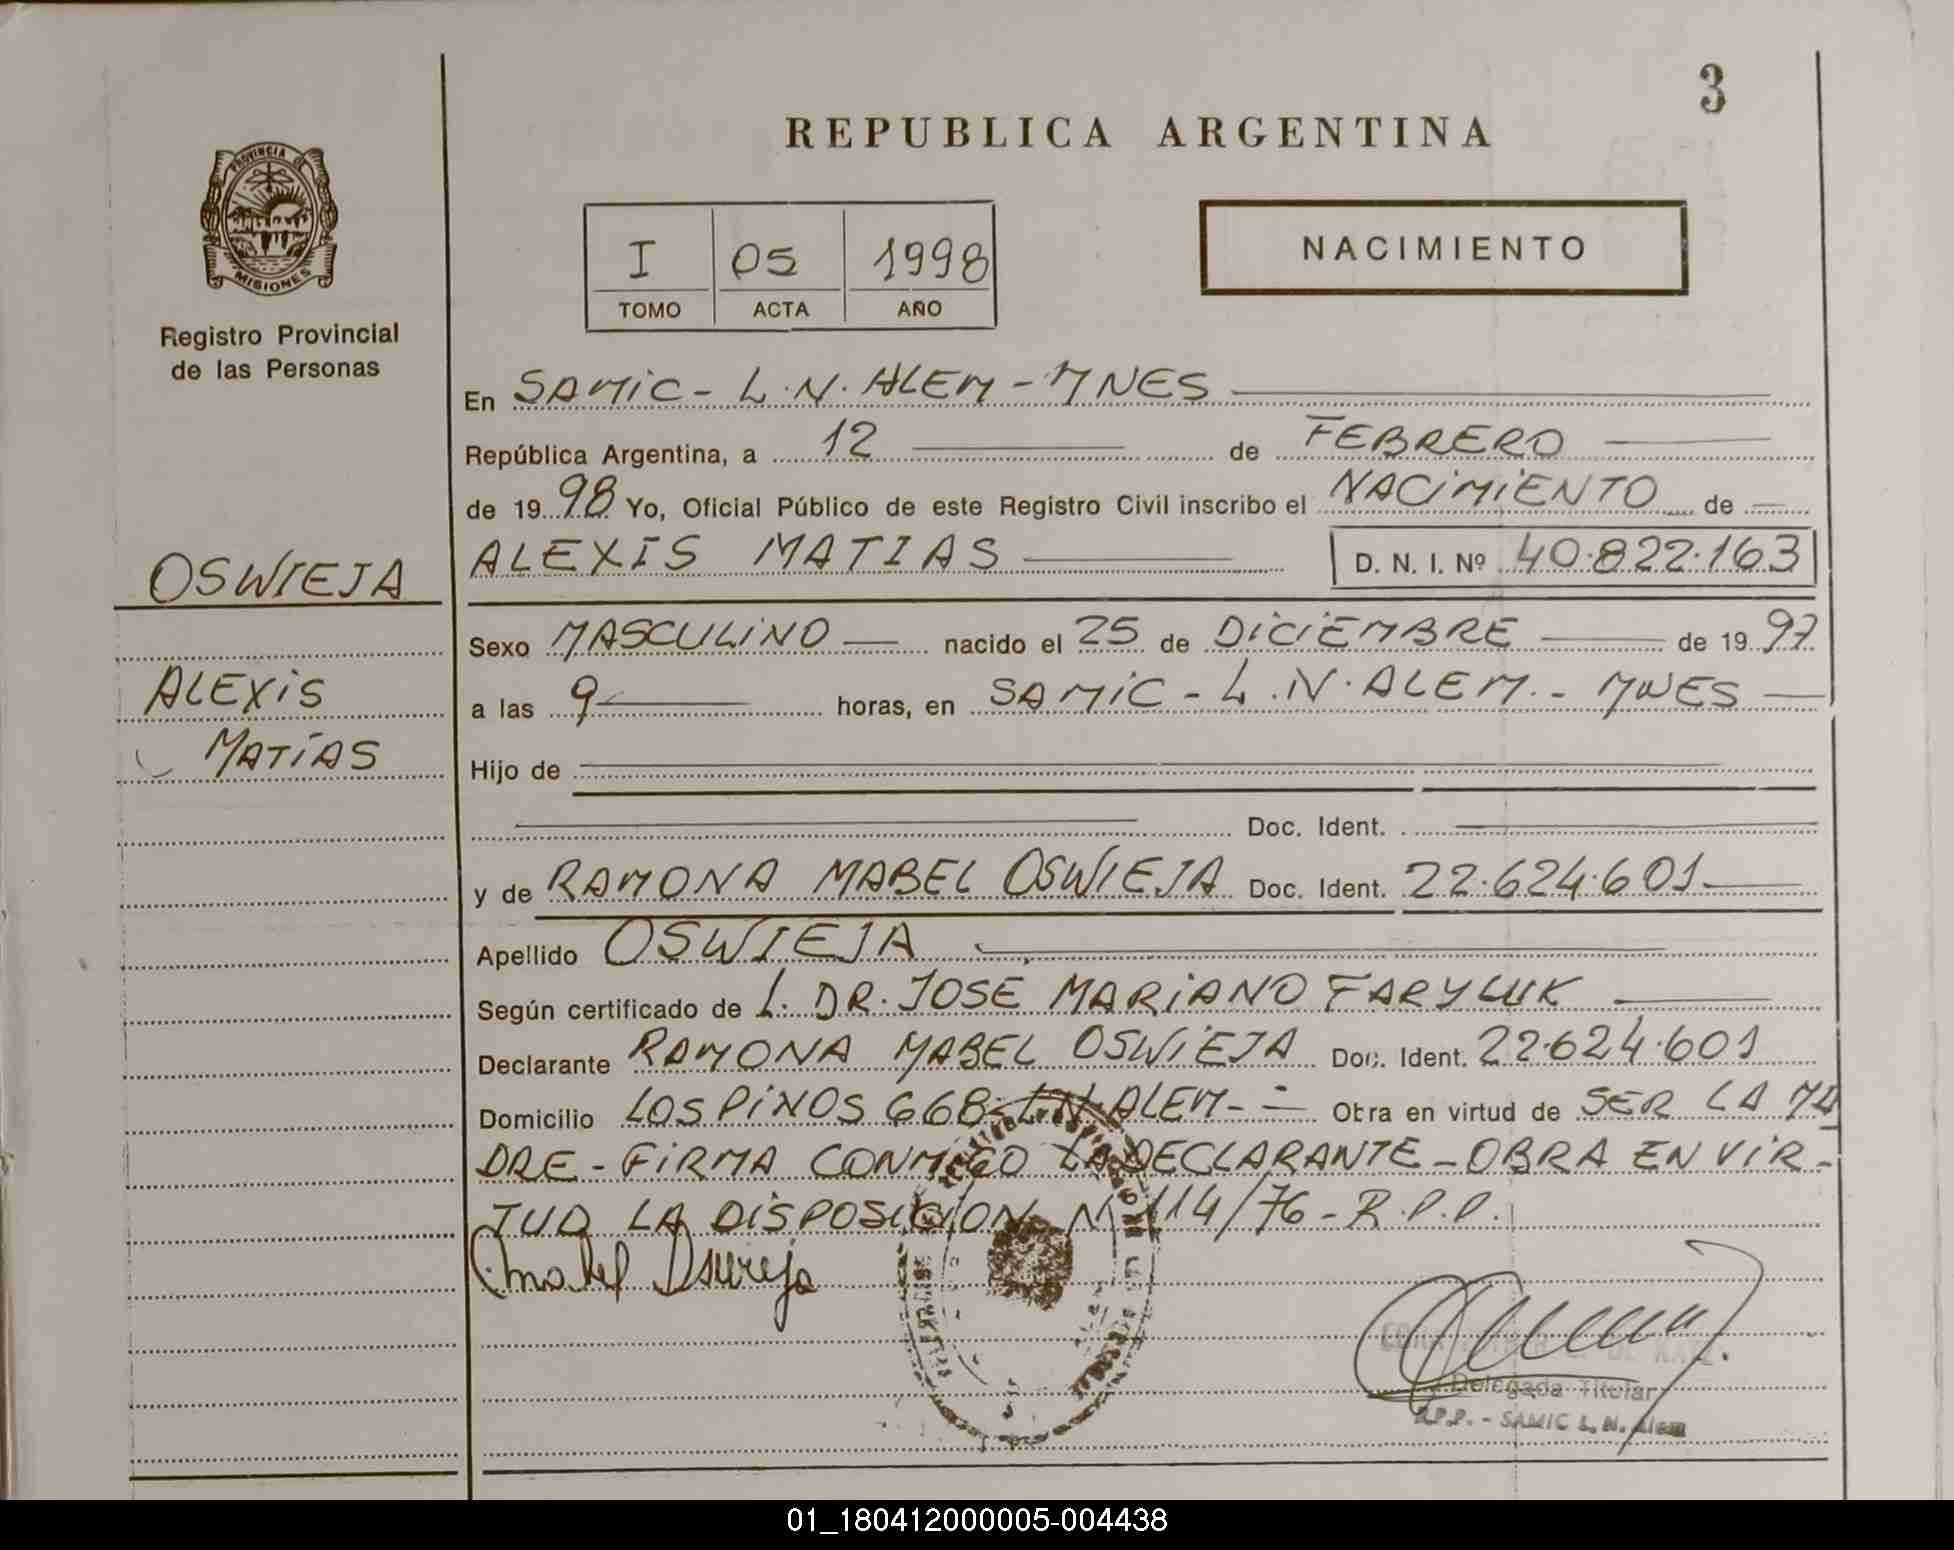 3
REPUBLICA ARGENTINA
PROVINCIA DE
MISIONES
Registro Provincial
de las Personas
I 05 1998
TOMO ACTA AÑO
NACIMIENTO
En SAMIC - L.N. ALEM - MNES
República Argentina, a 12 de FEBRERO
de 1998 Yo, Oficial Público de este Registro Civil inscribo el NACIMIENTO de
OSWIEJA
ALEXIS MATIAS D. N. I. Nº 40.822.163
Sexo MASCULINO nacido el 25 de DICIEMBRE de 1997
ALEXIS
a las 9 horas, en SAMIC - L.N. ALEM. - MNES
MATÍAS
Hijo de
Doc. Ident.
y de RAMONA MABEL OSWIEJA Doc. Ident. 22.624.601
Apellido OSWIEJA
Según certificado de L. DR. JOSE MARIANO FARYLUK
Declarante RAMONA MABEL OSWIEJA Doc. Ident. 22.624.601
Domicilio LOS PINOS 668 - L.N. ALEM - Obra en virtud de SER LA MA
DRE - FIRMA CONMIGO LA DECLARANTE - OBRA EN VIR-
TUD LA DISPOSICION Nº 114/76 - R.P.P.
Mabel Oswieja
Delegada Titular
R.P.P. - SAMIC L. N. Alem
01_180412000005-004438